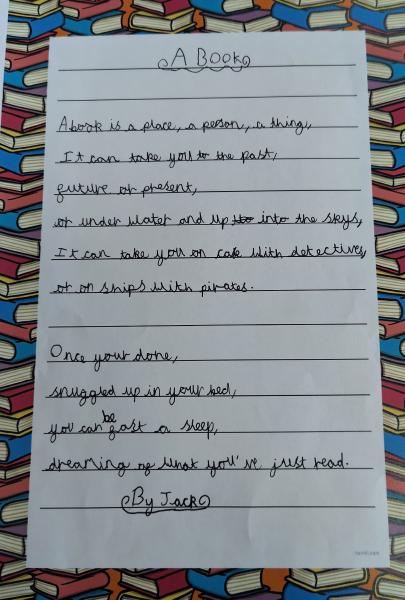 A Book
A book is a place, a person, a thing,
It can take you to the past,
future or present,
or under water and up to into the skys,
It can take you on case with detectives,
or on ships with pirates.
Once your done,
snuggled up in your bed,
you can be fast a sleep,
dreaming of what you've just read.
By Jack